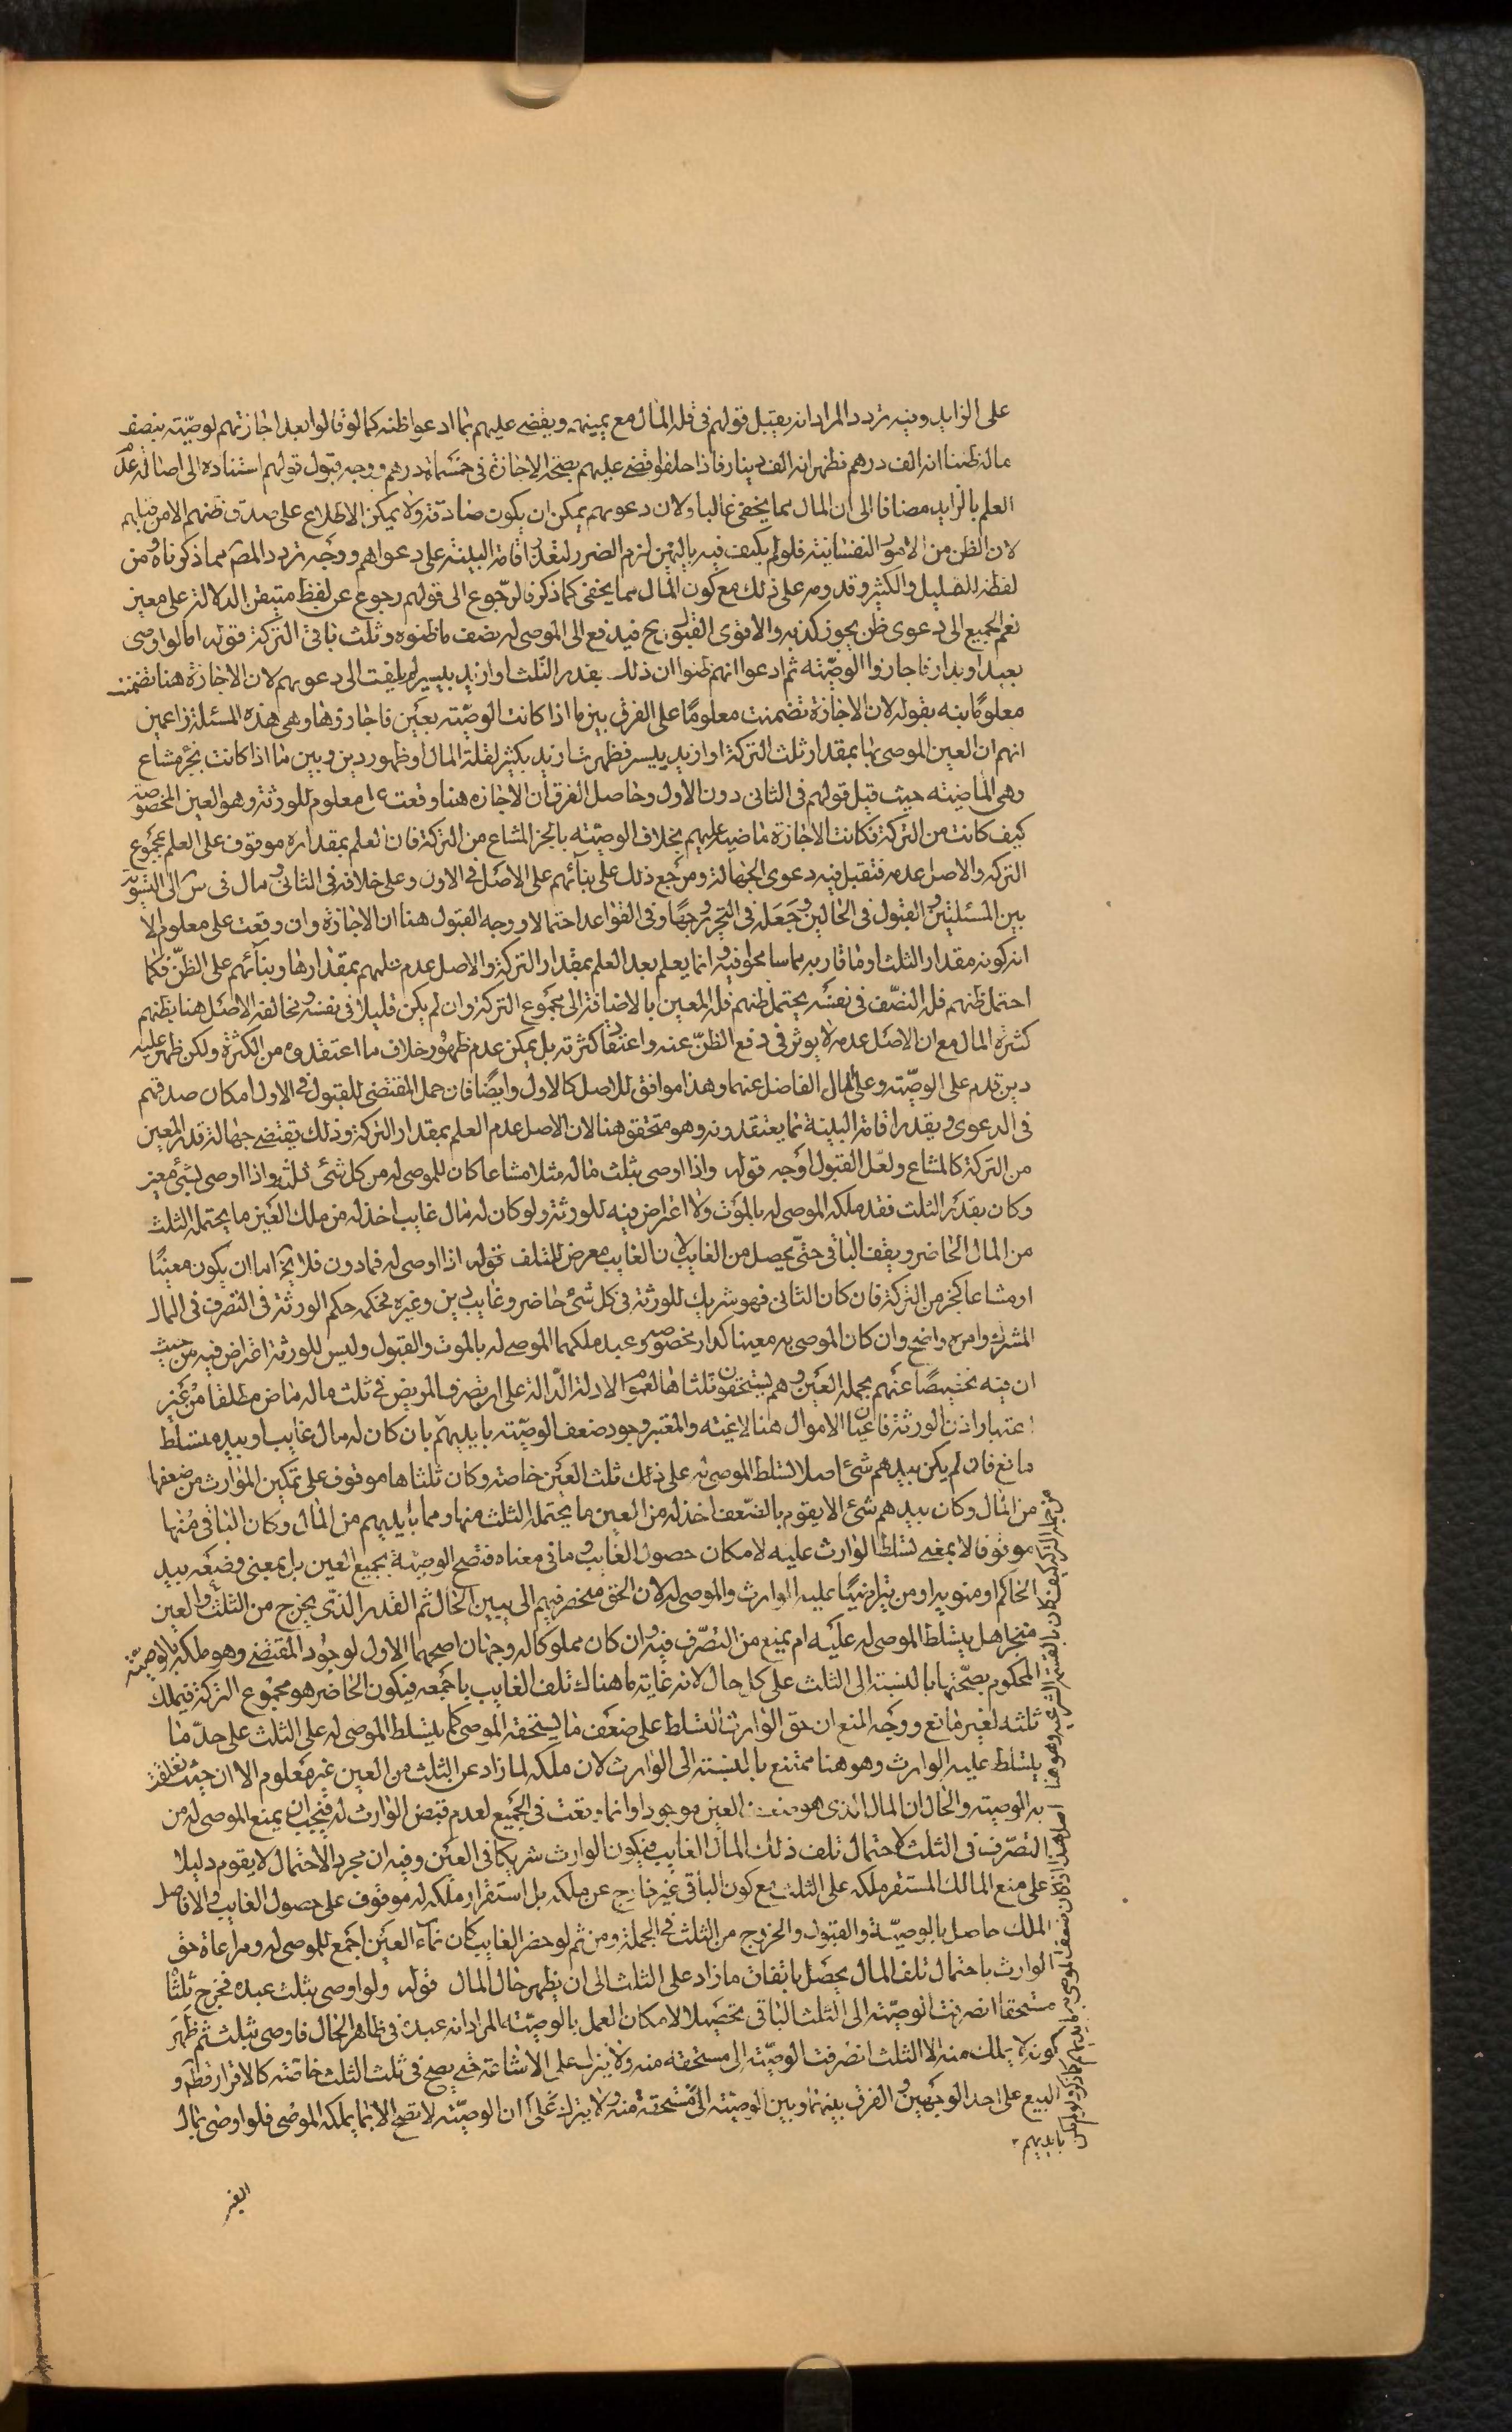 على الزايد وفيه تردد المراد انه يقبل قولهم في قلة المال مع يمينهم ويقضى عليهم بما ادعوا ظنه كما لو قالوا بعد اجازتهم لوصيته بنصف
ماله ظننا انه الف درهم فظهر انه الف دينار فاذا حلفوا قضى عليهم بصحة الاجازة في خمسمائة درهم ووجه قبول قولهم استناده الى اصالة عدم
العلم بالزايد مضافا الى ان المال مما يخفى غالبا ولان دعويهم يمكن ان يكون صادقة ولا يمكن الاطلاع على صدق ظنهم الا من قبلهم
لان الظن من الامور النفسانية فلو لم يكتف فيه باليمين لزم الضرر لتعذر اقامة البينة على دعواهم ووجه تردد المصـ مما ذكرناه ومن
لفظة للقليل والكثير وقدومه على ذلك مع كون المال مما يخفى كما ذكر فالرجوع الى قولهم رجوع عن لفظ متيقن الدلالة على معين
نعم الجميع الى دعوى ظن يجوز كذبه والاقوى القبول وح فيدفع الى الموصى له نصف ما ظنوه وثلث باقي التركة قوله اما لو اوصى
بعبد او بدار فاجازوا الوصية ثم ادعوا انهم ظنوا ان ذلك بقدر الثلث او ازيد بيسير لم يلتفت الى دعويهم لان الاجازة هنا تضمنت
معلوما نبه بقوله لان الاجازة تضمنت معلوما على الفرق بين ما اذا كانت الوصية بعين فاجازوها وهي هذه المسئلة زاعمين
انهم ان العين الموصى بها بمقدار ثلث التركة او ازيد بيسير فظهرت ازيد بكثير لقلة المال او ظهور دين وبين ما اذا كانت بجزء مشاع
وهي الماضية حيث قبل قولهم في الثاني دون الاول وحاصل الفرق ان الاجازه هنا وقعت على معلوم للورثة وهو العين المخصوصة
كيف كانت من التركة فكانت الاجازة ماضية عليهم بخلاف الوصية بالجزء المشاع من التركة فان العلم بمقداره موقوف على العلم بمجموع
التركة والاصل عدمه فتقبل فيه دعوى الجهالة ومرجع ذلك على بنائهم على الاصل في الاول وعلى خلافه في الثاني ومال في س الى التسوية
بين المسئلتين والقبول في الحالين وجعله في التحرير وجها وفي القواعد احتمالا ووجه القبول هنا ان الاجازة وان وقعت على معلوم الا
انه كونه مقدار الثلث او ما قاربه مما سامحوا فيه انما يعلم بعد العلم بمقدار التركة والاصل عدم علمهم بمقدارها وبنائهم على الظن فكما
احتمل ظنهم قلة النصف في نفسه يحتمل ظنهم قلة المعين بالاضافة الى مجموع التركة وان لم يكن قليلا في نفسه ومخالفة الاصل هنا بظنهم
كثرة المال مع ان الاصل عدمه لا يوثر في دفع الظن عنه واعتقاد كثرته بل يمكن عدم ظهور خلاف ما اعتقدوه من الكثرة ولكن ظهر عليه
دين قدم على الوصية وعلى المال الفاضل عنهما وهذا موافق للاصل كالاول وايضا فان حمل المقتضى للقبول في الاول امكان صدقهم
في الدعوى وتعذر اقامة البينة بما يعتقدونه وهو متحقق هنا لان الاصل عدم العلم بمقدار التركة وذلك يقتضى جهالة قدر المعين
من التركة كالمشاع ولعل القبول اوجه قوله واذا اوصى بثلث ماله مثلا مشاعا كان للموصى له من كل شئ ثلثه واذا اوصى بشئ معين
وكان بقدر الثلث فقد ملكه الموصى له بالموت ولا اعتراض فيه للورثة ولو كان له مال غايب اخذ له من ملك العين ما يحتمله الثلث
من المال الحاضر ويقف الباقي حتى يحصل من الغايب لان الغايب معرض للتلف قوله اذا اوصى له فمادون فلا يخ اما ان يكون معينا
او مشاعا كجزء من التركة فان كان الثاني فهو شريك للورثة في كل شئ حاضر وغايب دين وغيره فحكمه حكم الورثة في التصرف في المال
المشترك وامره واضح وان كان الموصى به معينا كدار مخصوصه وعبد ملكهما الموصى له بالموت والقبول وليس للورثة اعتراض فيه من حيث
ان فيه تخصيصا عنهم بجملة العين وهم يستحقون ثلثاها لعموم الادلة الدالة على ان تصرف المريض في ثلث ماله ماض مطلقا من غير
اعتبار اذن الورثة فاعيان الاموال هنا لاغية والمعتبر وجود ضعف الوصية بايديهم بان كان له مال غايب او بيده متسلط
مانع فان لم يكن بيدهم شئ اصلا تسلط الموصى له على ذلك ثلث العين خاصة وكان ثلثاها موقوف على تمكين الموارث من ضعفها
من المال وكان بيدهم شئ الا يقوم بالضعف اخذ له من العين ما يحتمله الثلث منها ومما بايديهم من المال وكان الباقي منها
موقوفا لا بمعنى تسلط الوارث عليه لامكان حصول الغايب وما في معناه فتصح الوصية بجميع العين بل بمعنى وضعه بيد
الحاكم او منوبه او من تراضيا عليه الوارث والموصى له لان الحق منحصر فيهم الى يبين الحال ثم القدر الذي يخرج من الثلث والعين
منجزا هل يتسلط الموصى له عليه ام يمنع من التصرف فيه وان كان مملوكا له وجهان اصحهما الاول لوجود المقتضى وهو ملكه بالوصية
المحكوم بصحتها بالنسبة الى الثلث على كل حال لانه غاية ما هناك تلف الغايب باجمعه فيكون الحاضر هو مجموع التركة فيملك
ثلثه لغير مانع ووجه المنع ان حق الوارث التسلط على ضعف ما يستحقه الموصى كلما يتسلط الموصى له على الثلث على حد ما
يتسلط عليه الوارث وهو هنا ممتنع بالنسبة الى الوارث لان ملكه لما زاد عن الثلث من العين غير معلوم الا ان حيث تعلقت
به الوصية والحال ان المال الذي هو ضعف العين موجود وانما وقعت في الجميع لعدم قبض الوارث له فيجب ان يمنع الموصى له من
التصرف في الثلث لاحتمال تلف ذلك المال الغايب فيكون الوارث شريكا في العين وفيه ان مجرد الاحتمال لا يقوم دليلا
على منع المالك المستقر ملكه على الثلث مع كون الباقي غير خارج عن ملكه بل استقرار ملكه له موقوف على حصول الغايب والا فاصل
الملك حاصل بالوصية والقبول والخروج من الثلث في الجملة ومن ثم لو حضر الغايب كان نماء العين اجمع للموصى له ومراعاة حق
الوارث باحتمال تلف المال يحصل بايقاف ما زاد على الثلث الى ان يظهر حال المال قوله ولو اوصى بثلث عبده فخرج ثلثا
مستحقا انصرفت الوصية الى الثلث الباقي تحصيلا لامكان العمل بالوصية المراد انه عبده في ظاهر الحال فاوصى بثلثه ثم ظهر
كونه لا يملك منه الا الثلث انصرفت الوصية الى مستحقه منه ولا ينزل على الاشاعة حتى يصح في ثلث الثلث خاصة كالاقرار قطعا و
البيع على احد الوجهين والفرق بينهما وبين الوصية الى مستحقه منه ولا ينزل على ان الوصية لا تصح الا بما يملكه الموصى فلو اوصى بمال
بايديهم
الغير